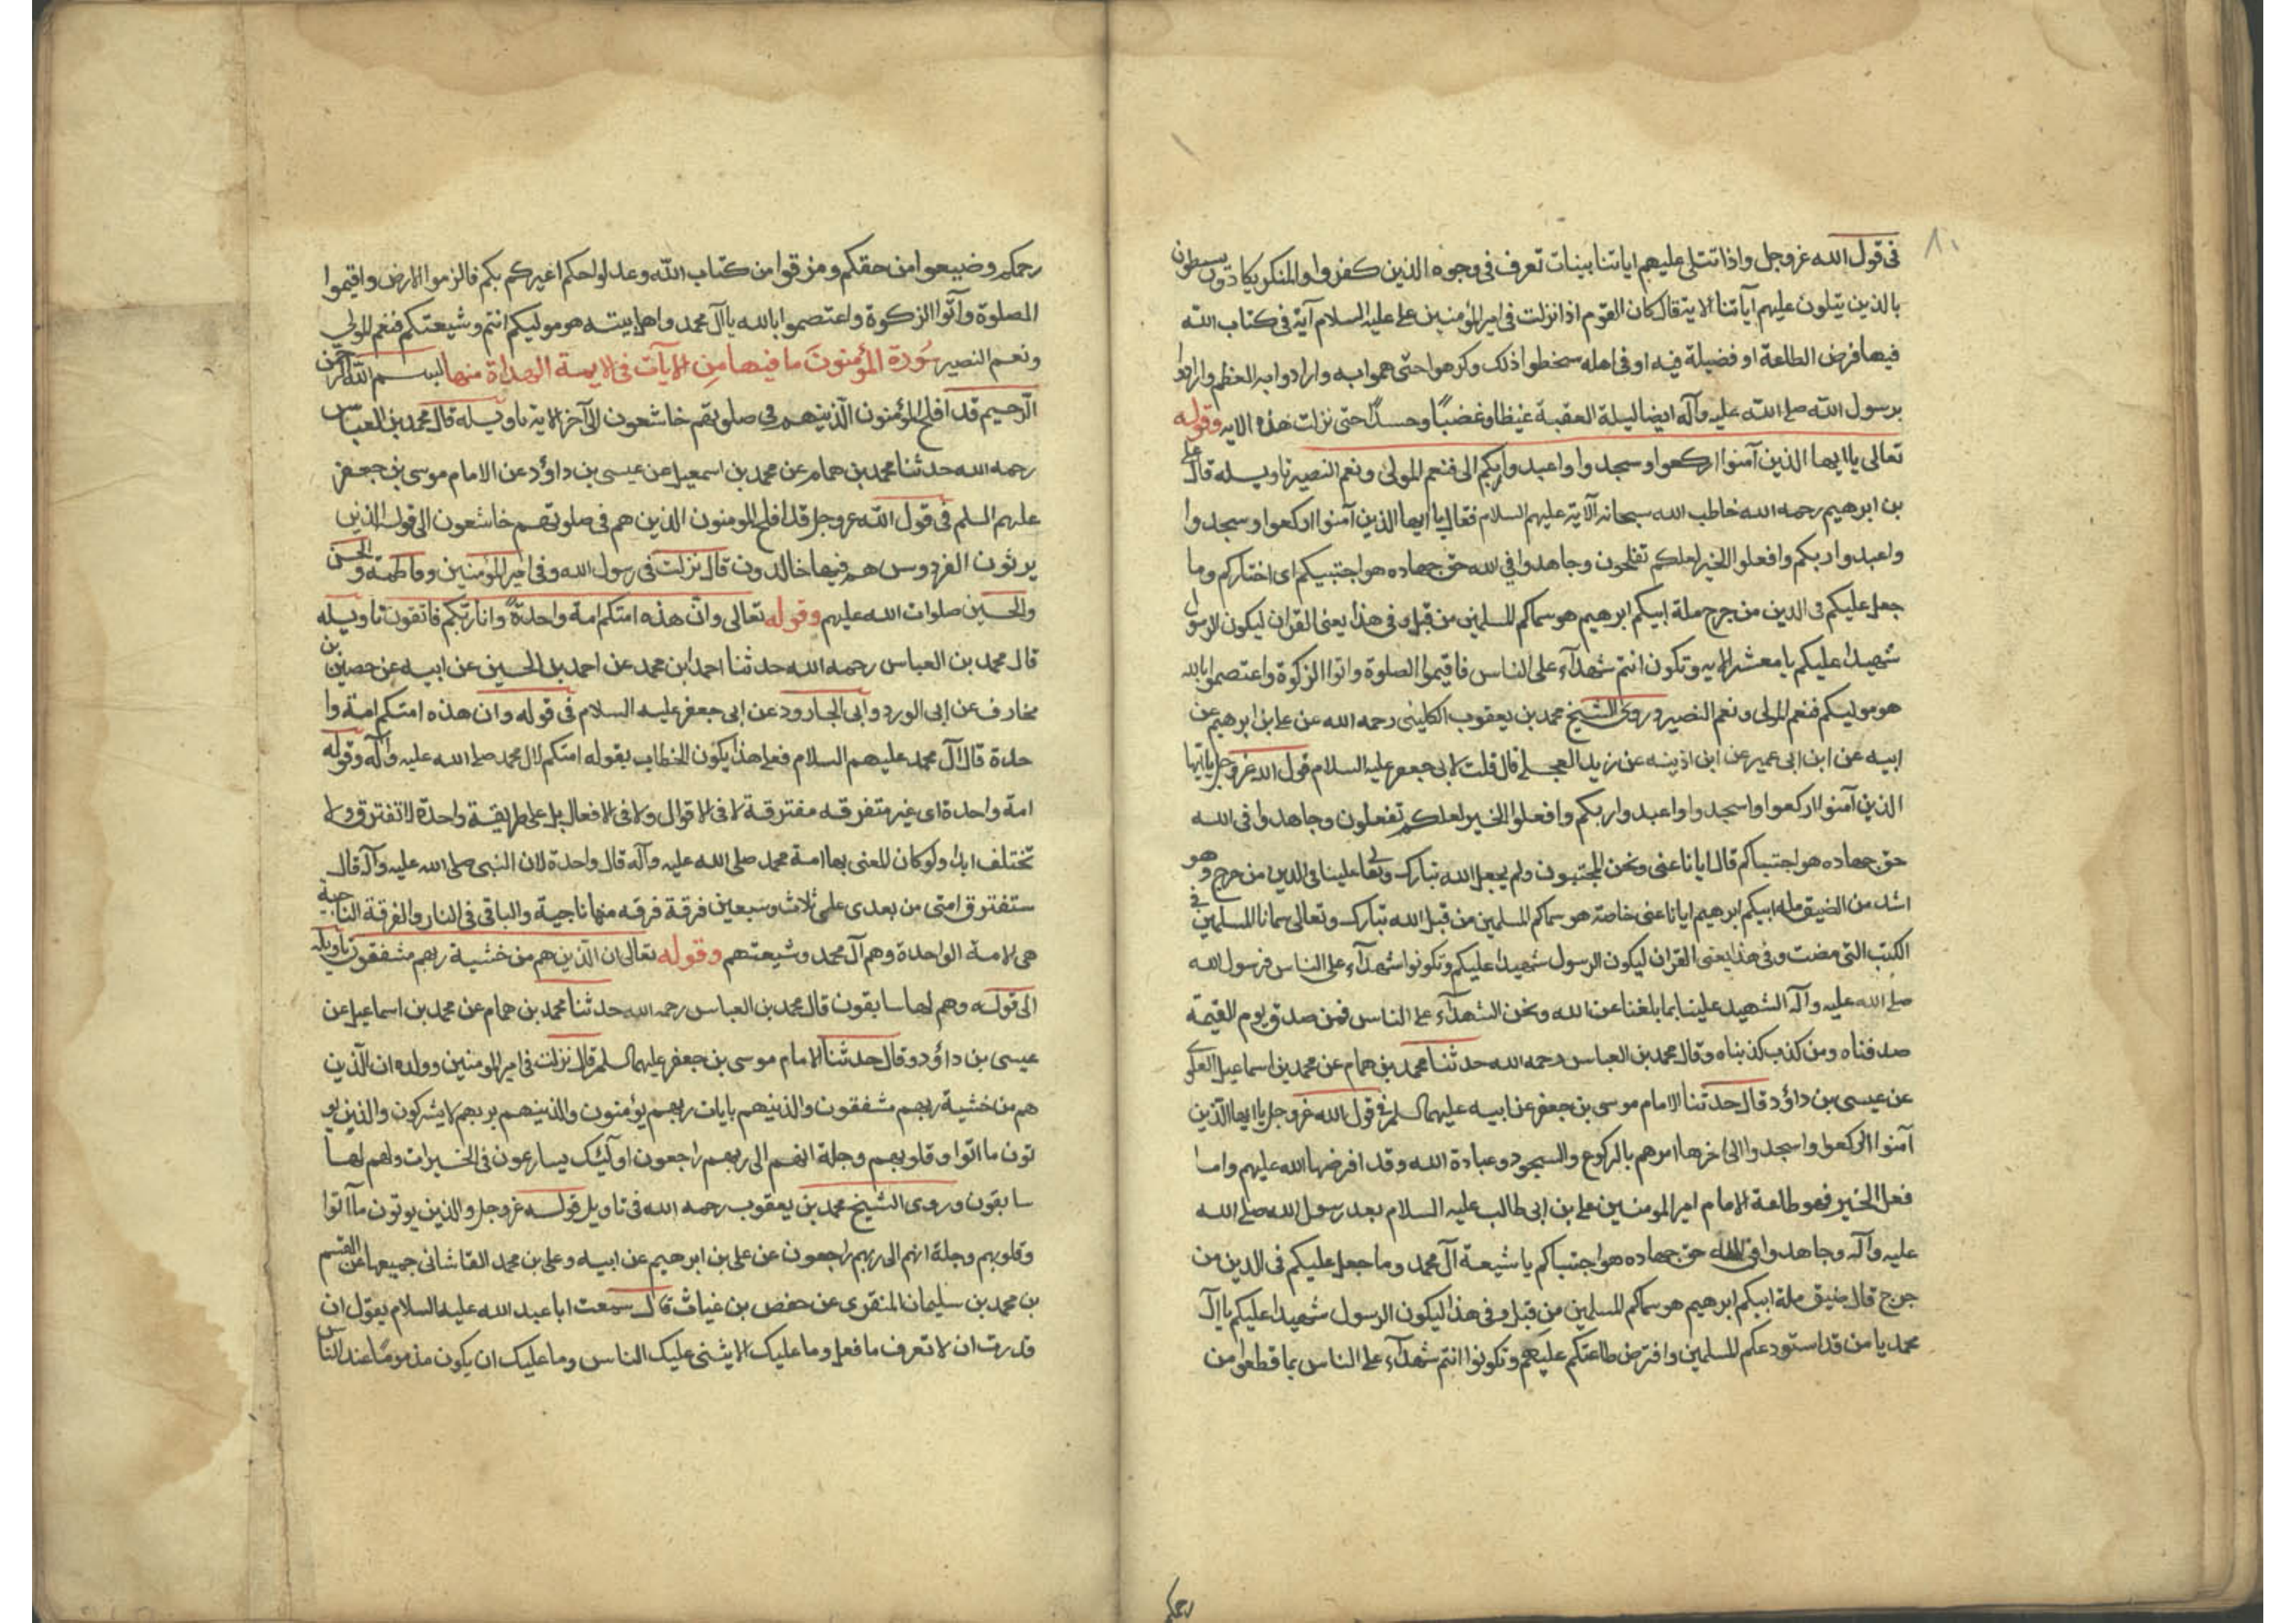 ٨٠
فى قول الله عز وجل واذا تتلى عليهم اياتنا بينات تعرف فى وجوه الذين كفروا والمنكر يكادون يسطون
بالذين يتلون عليهم آياتنا الاية قال كان القوم اذا نزلت فى امير المؤمنين على عليه السلام آية فى كتاب الله
فيها فرض الطاعة او فضيلة فيه او فى اهله سخطوا ذلك وكرهوا حتى هموا به وارادوا به العظم وارادوا
برسول الله صلى الله عليه وآله ايضا ليلة العقبة غيظا وغضبًا وحسدًا حتى نزلت هذه الايه وقوله
تعالى يا ايها الذين آمنوا اركعوا وسجدوا واعبدوا ربكم الى فنعم المولى ونعم النصير تاويله قال على
بن ابرهيم رحمه الله خاطب الله سبحانه الآية عليهم السلام فقال يا ايها الذين آمنوا اركعوا وسجدوا
واعبدوا ربكم وافعلوا الخير لعلكم تفلحون وجاهدوا في الله حق جهاده هو اجتبيكم اى اختاركم وما
جعل عليكم فى الدين من حرج ملة ابيكم ابرهيم هو سماكم المسلمين من قبل وفى هذا يعنى القران ليكون الرسول
شهيدا عليكم يا معشر الايه وتكون انتم شهدآء على الناس فاقيموا الصلوة واتوا الزكوة واعتصموا بالله
هو موليكم فنعم المولى ونعم النصير وروى الشيخ محمد بن يعقوب الكلينى رحمه الله عن على بن ابرهيم عن
ابيه عن ابن ابى عمير عن ابن اذينه عن زيد العجلى قال قلت لابى جعفر عليه السلام قول الله عز وجل يا ايها
الذين آمنوا اركعوا واسجدوا واعبدوا ربكم وافعلوا الخير لعلكم تفعلون وجاهدوا فى الله
حق جهاده هو اجتباكم قال ايانا عنى ونحن المجتبون ولم يجعل الله تبارك وتعالى علينا فى الدين من حرج وهو
اشد من الضيق ملة ابيكم ابرهيم ايانا عنى خاصة هو سماكم المسلمين من قبل الله تبارك وتعالى سمانا المسلمين فى
الكتب التى مضت وفى هذا يعنى القران ليكون الرسول شهيدا عليكم وتكونوا شهدآء على الناس فرسول الله
صلى الله عليه وآله الشهيد علينا بما بلغنا عن الله ونحن الشهدآء على الناس فمن صدق يوم القيمة
صدقناه ومن كذب كذبناه وقال محمد بن العباس رحمه الله حدثنا محمد بن همام عن محمد بن اسماعيل العلوى
عن عيسى بن داؤد قال حدثنا الامام موسى بن جعفر عن ابيه عليهما السلم فى قول الله عز وجل يا ايها الذين
آمنوا اركعوا واسجدوا الى اخرها امرهم بالركوع والسجود وعبادة الله وقد افرضها الله عليهم واما
فعل الخير فهو طاعة الامام امير المومنين على بن ابى طالب عليه السلام بعد رسول الله صلى الله
عليه وآله وجاهدوا فى الله حق جهاده هو اجتباكم يا شيعة آل محمد وما جعل عليكم فى الدين من
حرج قال ضيق ملة ابيكم ابرهيم هو سماكم المسلمين من قبل وفى هذا ليكون الرسول شهيدا عليكم يا آل
محمد يا من قد استودعكم المسلمين وافترض طاعتكم عليكم وتكونوا انتم شهدآء على الناس بما قطعوا من
رحمكم
رحمكم وضيعوا من حقكم ومزقوا من كتاب الله وعدلوا حكم اغيركم بكم فالزموا الارض واقيموا
الصلوة وآتوا الزكوة واعتصموا بالله يا آل محمد واهل بيته هو موليكم انتم وشيعتكم فنعم المولى
ونعم النصير سورة المؤمنون ما فيها من الآيات فى الايمة الهداة منها بسم الله الرحمن
الرحيم قد افلح المؤمنون الذينهم فى صلوتهم خاشعون الى آخر الاية تاويله قال محمد بن العباس
رحمه الله حدثنا محمد بن همام عن محمد بن اسمعيل عن عيسى بن داؤد عن الامام موسى بن جعفر
عليهم السلم فى قول الله عز وجل قد افلح المومنون الذين هم فى صلوتهم خاشعون الى قوله الذين
يرثون الفردوس هم فيها خالدون قال نزلت فى رسول الله وفى امير المؤمنين وفاطمة والحسن
والحسين صلوات الله عليهم وقوله تعالى وان هذه امتكم امة واحدةً وانا ربكم فاتقون تاويله
قال محمد بن العباس رحمه الله حدثنا احمد ابن محمد عن احمد بن الحسين عن ابيه عن حصين بن
مخارف عن ابى الورد وابى الجارود عن ابى جعفر عليه السلام فى قوله وان هذه امتكم امة وا
حدة قال آل محمد عليهم السلام فعلى هذا يكون الخطاب بقوله امتكم لال محمد صلى الله عليه وآله وقوله
امة واحدة اى غير متفرقه مفترقة لا فى الاقوال ولا فى الافعال بل على طريقة واحدة لا تفترق ولا
تختلف ابدا ولو كان المعنى بها امة محمد صلى الله عليه وآله قال واحدة لان النبى صلى الله عليه وآله قال
ستفترق امتى من بعدى على ثلاث وسبعين فرقة فرقه منها ناجية والباقى فى النار والفرقة الناجية
هى الامة الواحدة وهم آل محمد وشيعتهم وقوله تعالى ان الذين هم من خشية ربهم مشفقون تاويله
الى قوله وهم لها سابقون قال محمد بن العباس رحمه الله حدثنا محمد بن همام عن محمد بن اسماعيل عن
عيسى بن داؤد وقال حدثنا الامام موسى بن جعفر عليهما السلم قال نزلت فى امير المومنين وولده ان الذين
هم من خشية ربهم مشفقون والذينهم بايات ربهم يؤمنون والذينهم بربهم لا يشركون والذين يو
تون ما اتوا وقلوبهم وجلة انهم الى ربهم راجعون اولئك يسارعون فى الخيرات ولهم لها
سابقون وروى الشيخ محمد بن يعقوب رحمه الله فى تاويل قوله عز وجل والذين يوتون ما آتوا
وقلوبهم وجلة انهم الى ربهم راجعون عن على بن ابرهيم عن ابيه وعلى بن محمد القاشانى جميعها عن القسم
بن محمد بن سليمان المنقرى عن حفص بن غياث قال سمعت ابا عبد الله عليه السلام يقول ان
قدرت ان لا تعرف ما فعل وما عليك الا يثنى عليك الناس وما عليك ان يكون مذموما عند الناس